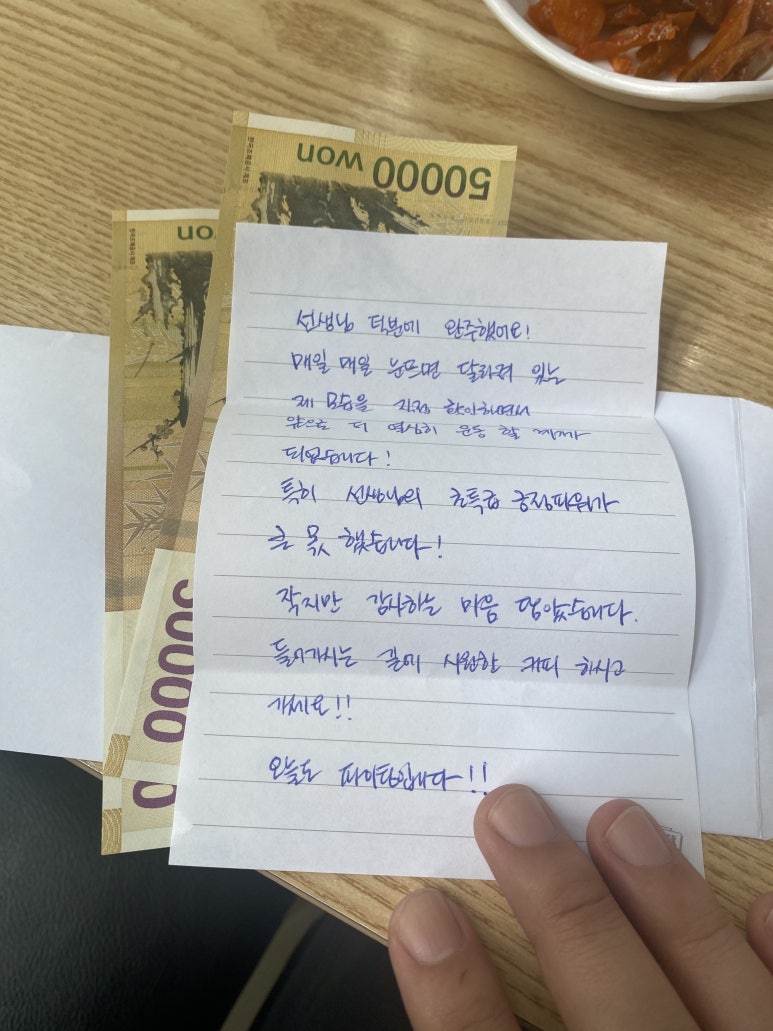 한국조폐공사 제조
50000 won
won
선생님 덕분에 완주했어요!
매일 매일 눈뜨면 달라져 있는
제 모습을 직접 확인하면서
앞으로 더 열심히 운동 할 계기가
되었습니다!
특히 선생님의 초특급 긍정파워가
큰 몫 했습니다!
작지만 감사하는 마음 담았습니다.
들어가시는 길에 시원한 커피 하시고
가세요!!
오늘도 파이팅입니다!!
50000